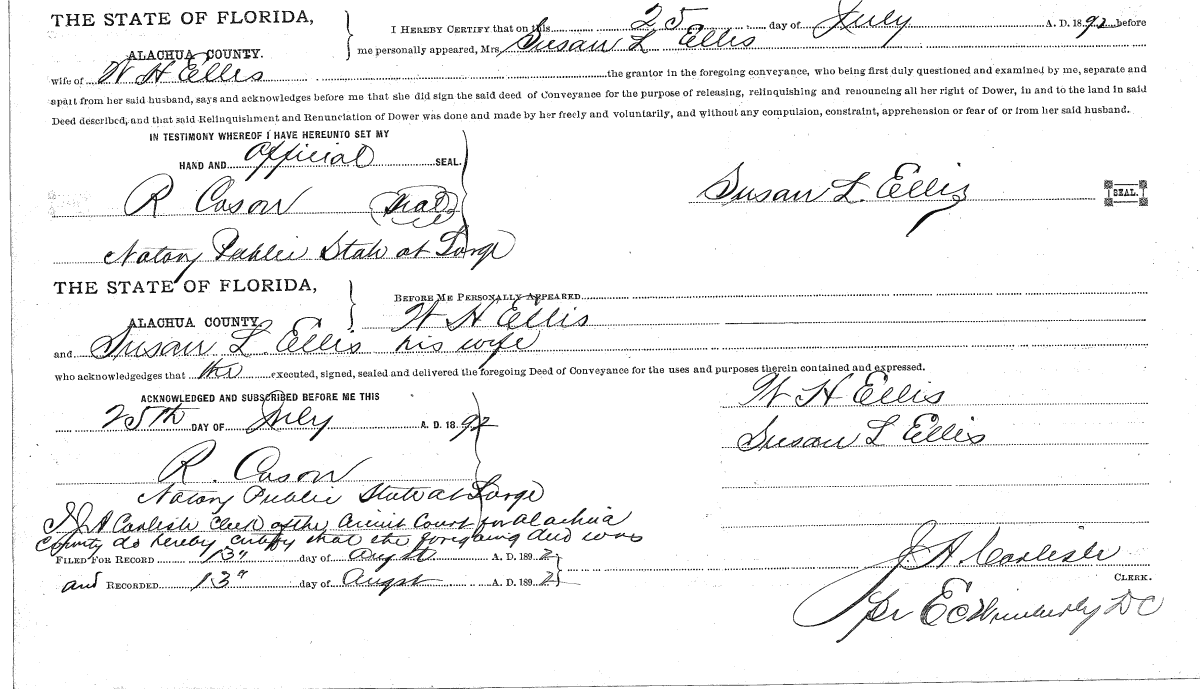 THE STATE OF FLORIDA,
ALACHUA COUNTY.
I HEREBY CERTIFY that on this 25 day of July A. D. 1892 before
me personally appeared, Mrs. Susan L Ellis
wife of W H Ellis the grantor in the foregoing conveyance, who being first duly questioned and examined by me, separate and
apart from her said husband, says and acknowledges before me that she did sign the said deed of Conveyance for the purpose of releasing, relinquishing and renouncing all her right of Dower, in and to the land in said
Deed described, and that said Relinquishment and Renunciation of Dower was done and made by her freely and voluntarily, and without any compulsion, constraint, apprehension or fear of or from her said husband.
IN TESTIMONY WHEREOF I HAVE HEREUNTO SET MY
HAND AND Official SEAL.
R Cason (Seal)
Susan L. Ellis SEAL.
Notary Public State at Large
THE STATE OF FLORIDA,
ALACHUA COUNTY
BEFORE ME PERSONALLY APPEARED
W H Ellis
and Susan L. Ellis his wife
who acknowledgedges that the executed, signed, sealed and delivered the foregoing Deed of Conveyance for the uses and purposes therein contained and expressed.
ACKNOWLEDGED AND SUBSCRIBED BEFORE ME THIS
25th DAY OF July A. D. 18 92
W H Ellis
Susan L Ellis
R. Cason
Notary Public State at Large
I J A Carlisle Clerk of the Circuit Court for Alachua
County do hereby certify that the foregoing deed was
FILED FOR RECORD 13" day of Augst A. D. 1892
and RECORDED 13" day of Augst A. D. 1892
J. A. Carlisle
CLERK.
Pr E C Wimberly DC